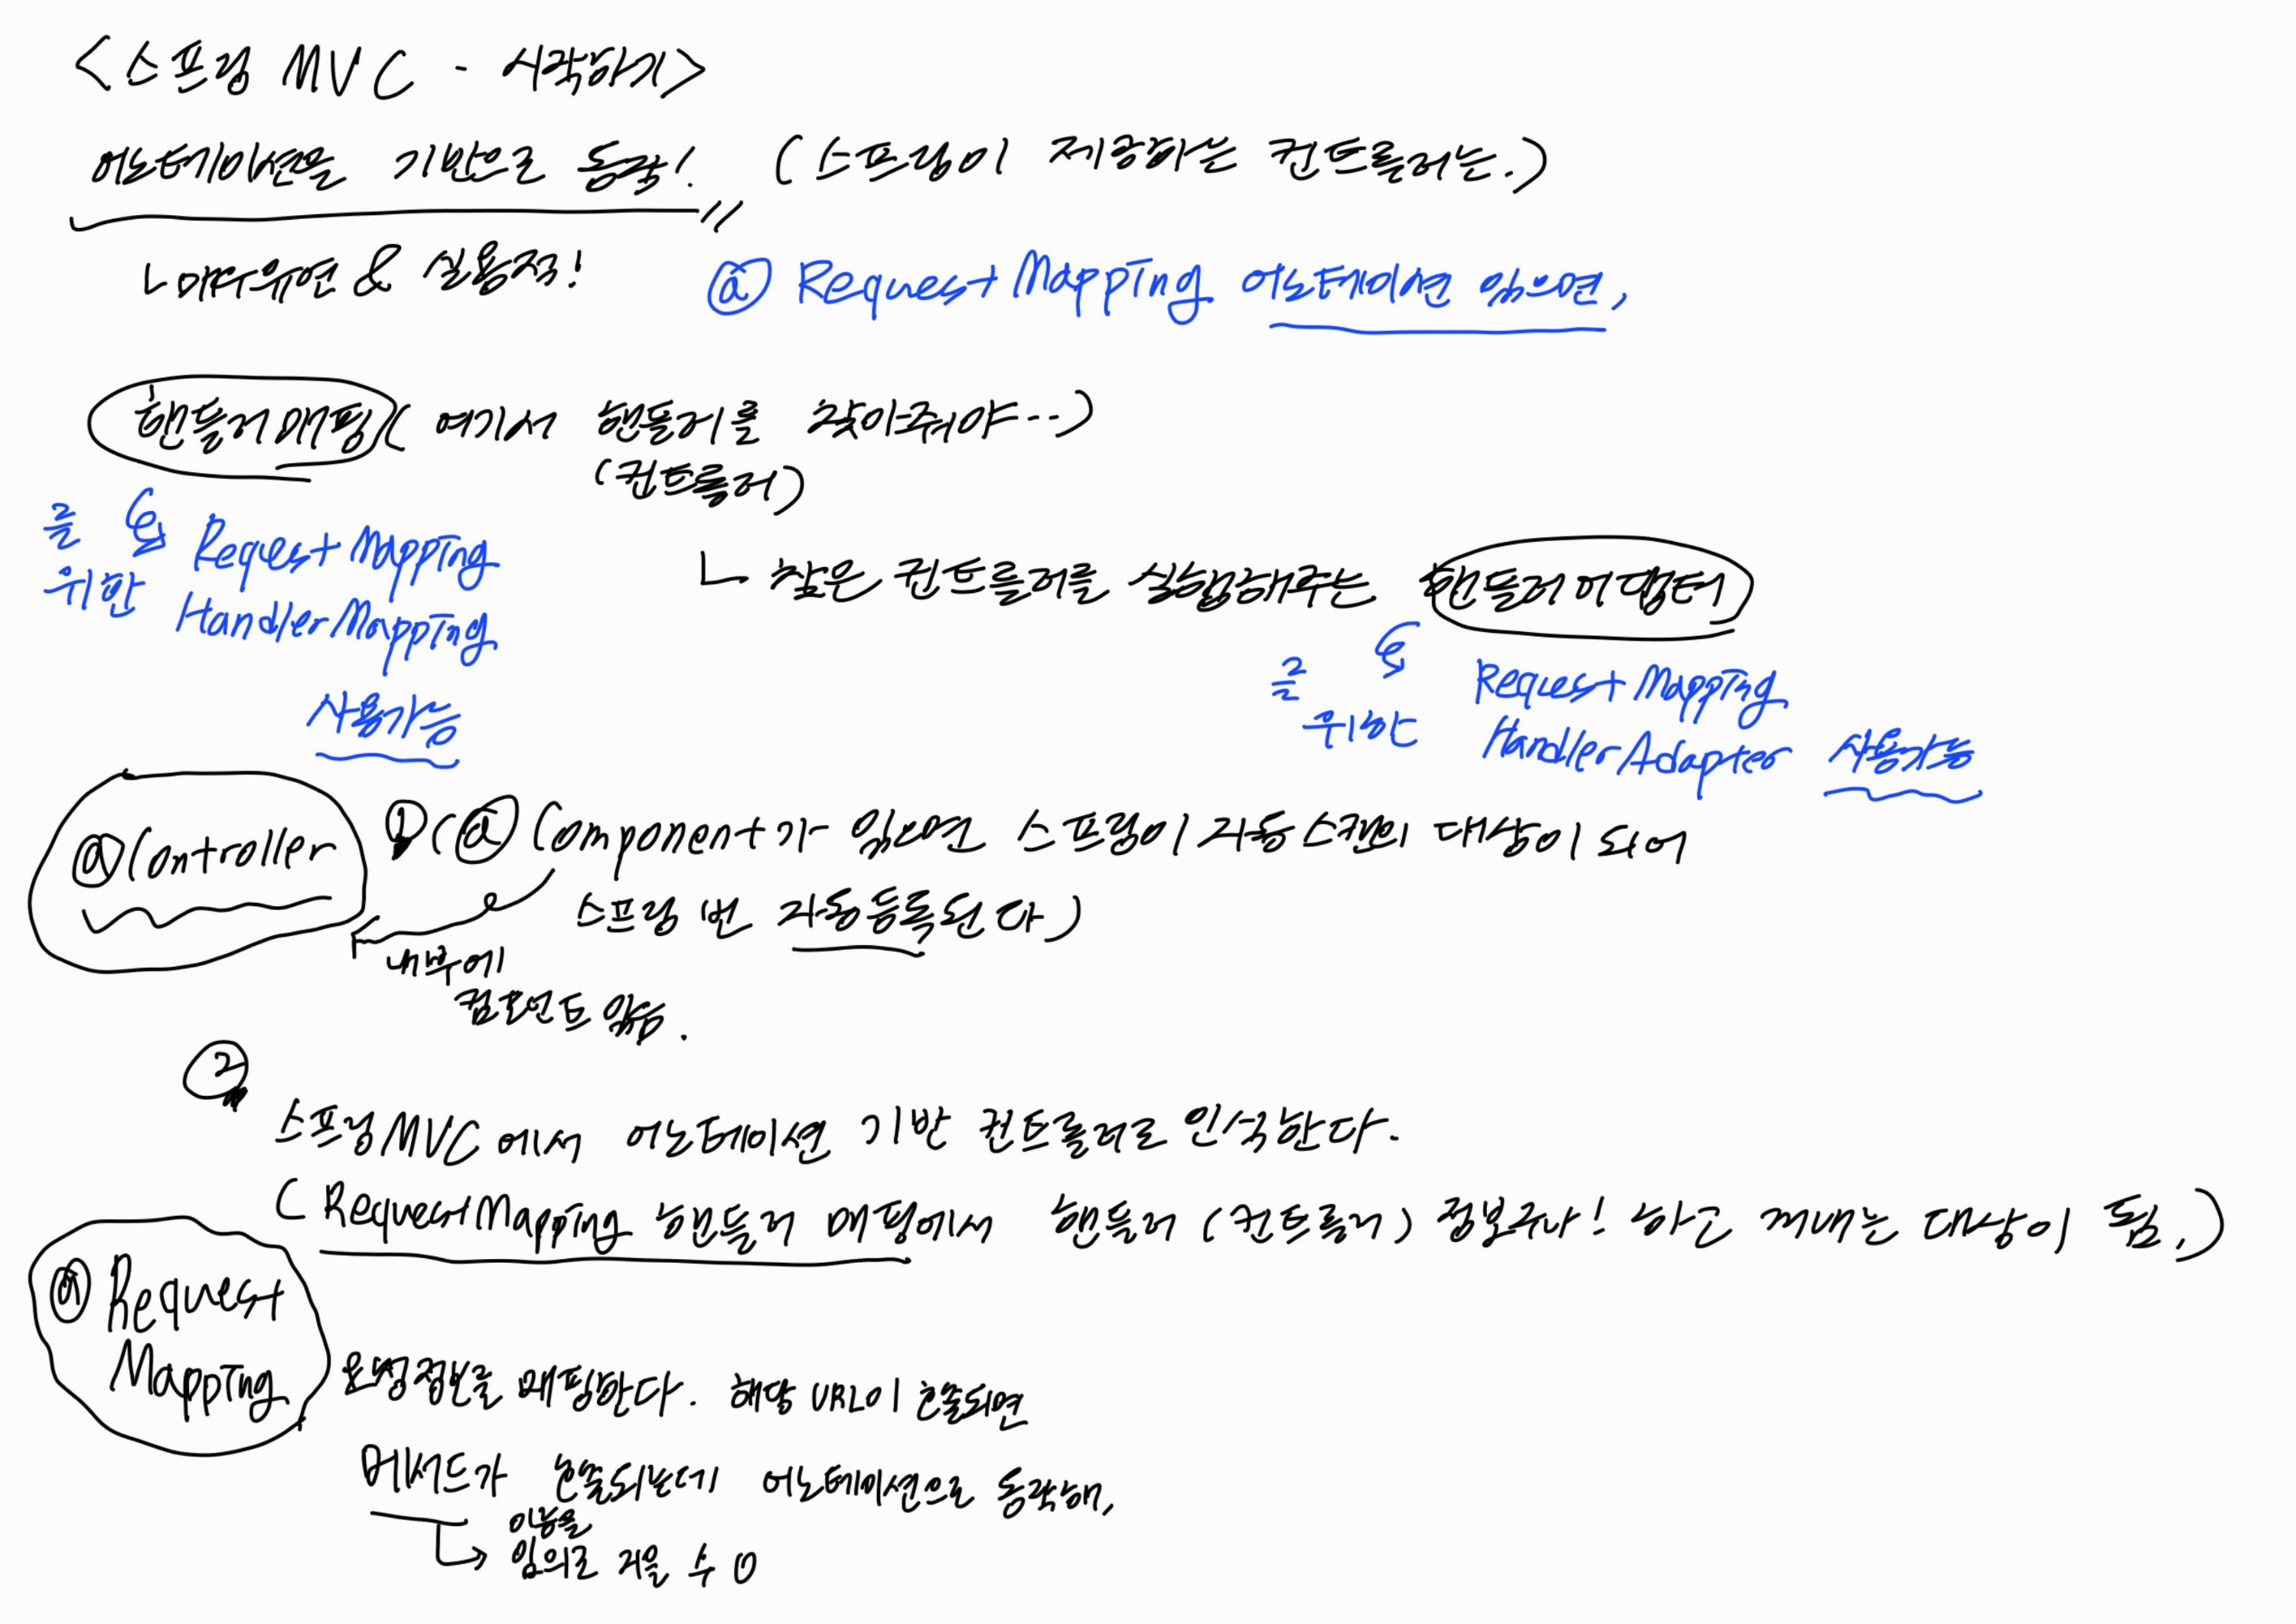 <스프링 MVC - 시작하기>
어노테이션을 기반으로 동작! (스프링이 제공하는 컨트롤러는.)
ㄴ매우유연 & 실용적!
@RequestMapping 어노테이션 있으면,
핸들러 매핑 (여기서 핸들러를 찾아줘야--)
(컨트롤러)
를 위한 RequestMapping
HandlerMapping
사용가능
ㄴ 찾은 컨트롤러를 실행해주는 핸들러 어댑터
를 위한 RequestMapping
HandlerAdapter 사용가능
@Controller ① (@Component가 있으면 스프링이 자동스캔의 대상이 되어
스프링 빈 자동등록된다)
내부에
컴포넌트 있음.
②
스프링MVC에서 어노테이션 기반 컨트롤러로 인식한다.
(RequestMapping 핸들러 매핑에서 핸들러 (컨트롤러) 정보구나! 하고 꺼내는 대상이 됨.)
@Request
Mapping
요청정보를 매핑한다. 해당 URL이 호출되면
메서드가 호출되는데 어노테이션으로 동작해,
이름을
임의로 지을 수 O